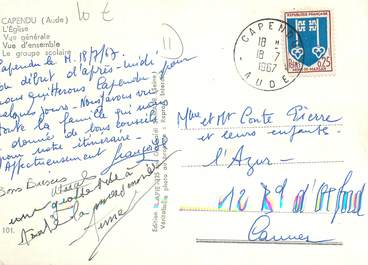 CAPENDU (Aude)
L'Église
Vue générale
Vue d'ensemble
Le groupe scolaire
10 €
11
Capendu le M. 18/7/67
Au début d'après-midi
nous quitterons Capendu pour
quelques jours. Nous avons vu
toute la famille qui nous
a donné de bons conseils
pour notre itinéraire.
Affectueusement
Bons Baisers
une grosse bise à
toute la
101.
CAPENDU
18 H
18-7
1967
AUDE
RÉPUBLIQUE FRANÇAISE
0,25
Mme et Mr Conte Pierre
et leurs enfants
l'Azur
12 Bd d'Oxford
Cannes